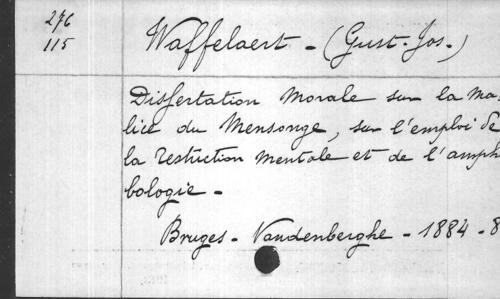 276
115
Waffelaert - (Gust. Jos.)
Dissertation morale sur la ma-
lice du Mensonge, sur l'emploi de
la restriction mentale et de l'amph
bologie -
Bruges - Vandenberghe - 1884 - 8